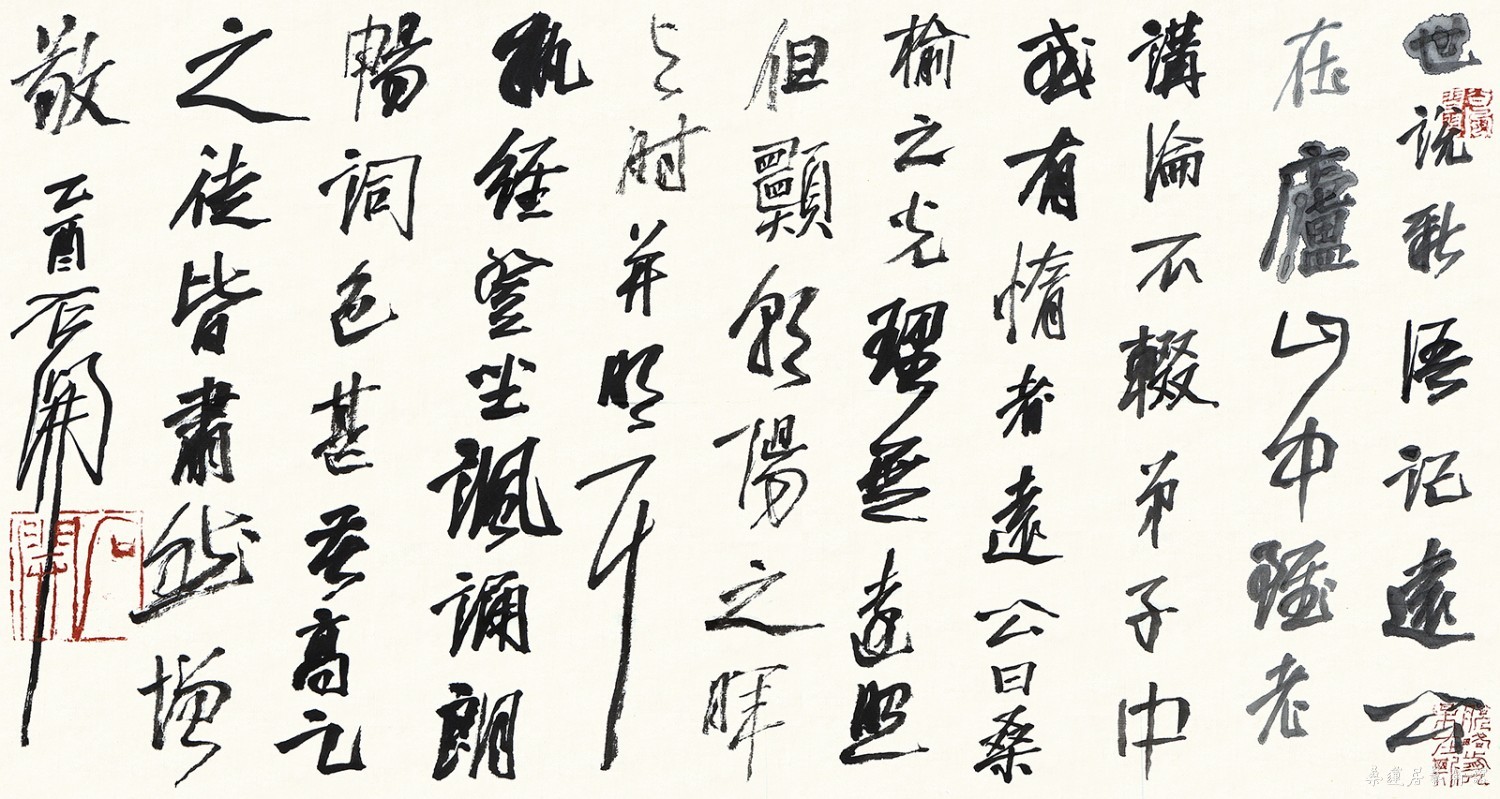 世說新語記遠公
在廬山中雖老
講論不輟弟子中
或有惰者遠公曰桑
榆之光理無遠照
但願朝陽之暉
与时并明耳
執經登坐諷誦朗
暢詞色甚苦高足
之徒皆肅然增
敬 乙酉石開
石開